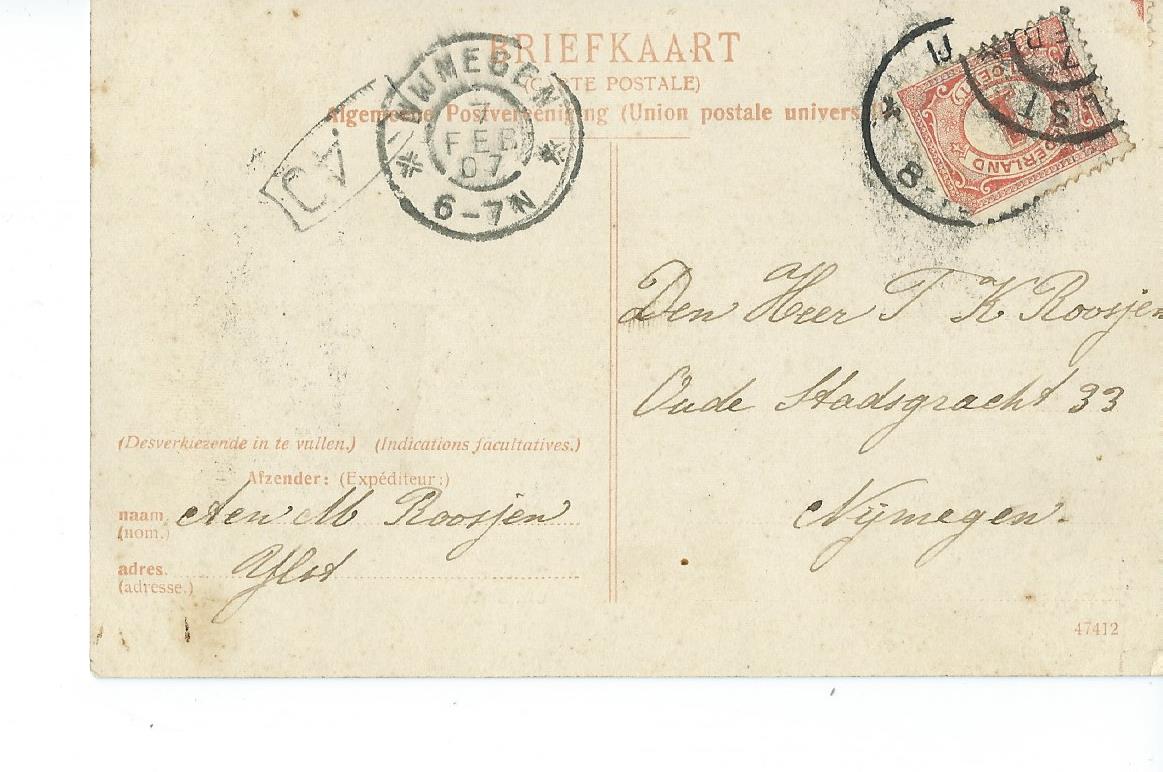 BRIEFKAART
(CARTE POSTALE)
Algemeene Postvereeniging (Union postale univers
NIJMEGEN
7
FEB
07
6-7N
Den Heer T K Roosjen
Oude Stadsgracht 33
Nijmegen.
(Desverkiezende in te vullen.) (Indications facultatives.)
Afzender: (Expéditeur:)
naam. Aen M Roosjen
(nom.)
adres. Ylst
(adresse.)
47412